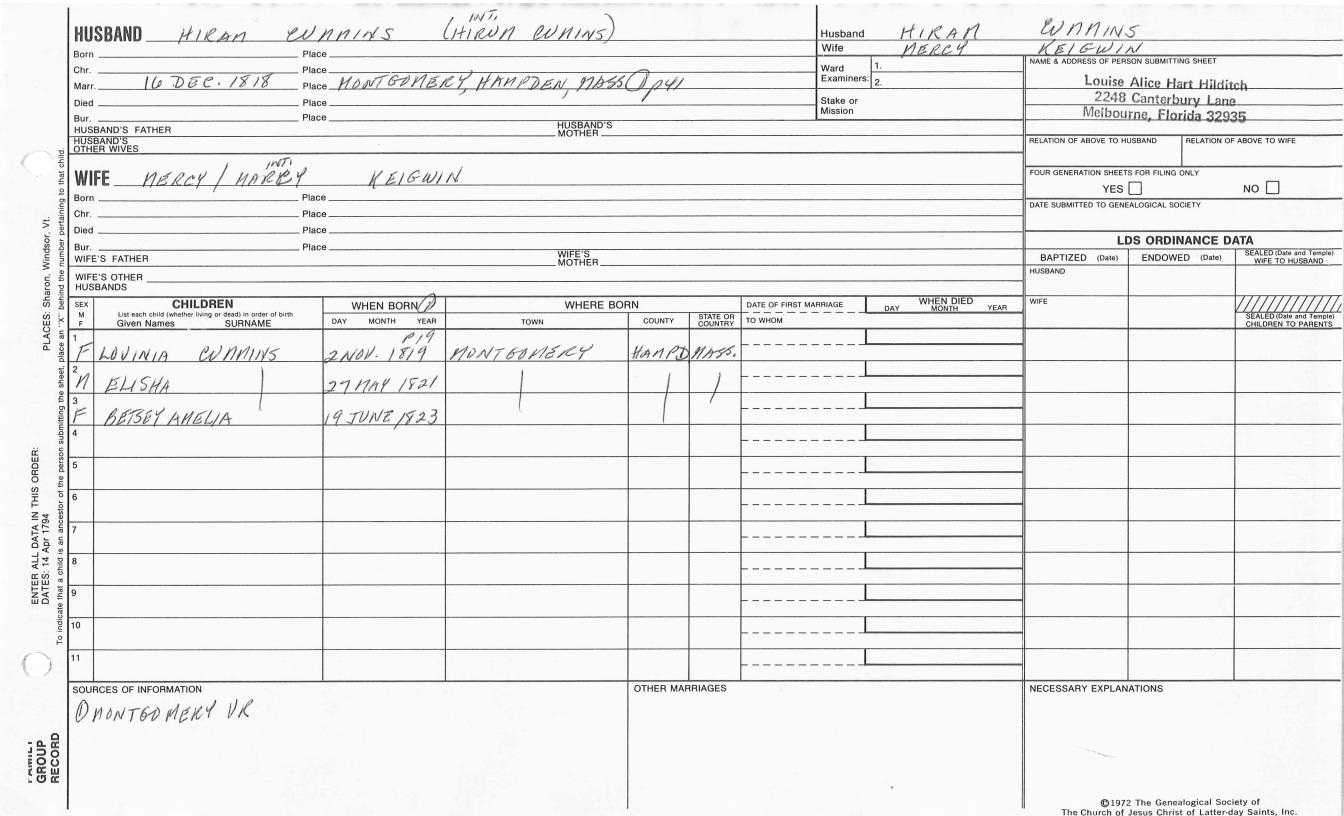 HUSBAND HIRAM CUMMINS (INT. HIRUM CUMINS)
Born Place
Chr. Place
Marr. 16 DEC. 1818 Place MONTGOMERY, HAMPDEN, MASS ① p41
Died Place
Bur. Place
HUSBAND'S FATHER HUSBAND'S MOTHER
HUSBAND'S OTHER WIVES
Husband HIRAM CUMMINS
Wife MERCY KEIGWIN
Ward Examiners: 1.
2.
Stake or Mission
NAME & ADDRESS OF PERSON SUBMITTING SHEET
Louise Alice Hart Hilditch
2248 Canterbury Lane
Melbourne, Florida 32935
RELATION OF ABOVE TO HUSBAND RELATION OF ABOVE TO WIFE
FOUR GENERATION SHEETS FOR FILING ONLY
YES NO
DATE SUBMITTED TO GENEALOGICAL SOCIETY
WIFE MERCY / INT. KEIGWIN
Born Place
Chr. Place
Died Place
Bur. Place
WIFE'S FATHER WIFE'S MOTHER
WIFE'S OTHER HUSBANDS
LDS ORDINANCE DATA
BAPTIZED (Date) ENDOWED (Date) SEALED (Date and Temple) WIFE TO HUSBAND
HUSBAND
WIFE
SEALED (Date and Temple) CHILDREN TO PARENTS
SEX M F
CHILDREN
List each child (whether living or dead) in order of birth
Given Names SURNAME
WHEN BORN ①
DAY MONTH YEAR
WHERE BORN
TOWN COUNTY STATE OR COUNTRY
DATE OF FIRST MARRIAGE
TO WHOM
WHEN DIED
DAY MONTH YEAR
P19
1 F LOVINIA CUMMINS 2 NOV. 1819 MONTGOMERY HAMPD MASS.
2 M ELISHA | 27 MAY 1821 | | |
3 F BETSEY AMELIA 19 JUNE 1823
4
5
6
7
8
9
10
11
SOURCES OF INFORMATION
① MONTGOMERY VR
OTHER MARRIAGES
NECESSARY EXPLANATIONS
©1972 The Genealogical Society of
The Church of Jesus Christ of Latter-day Saints, Inc.
ENTER ALL DATA IN THIS ORDER:
DATES: 14 Apr 1794 PLACES: Sharon, Windsor, Vt.
To indicate that a child is an ancestor of the person submitting the sheet, place an "X" behind the number pertaining to that child.
FAMILY
GROUP
RECORD